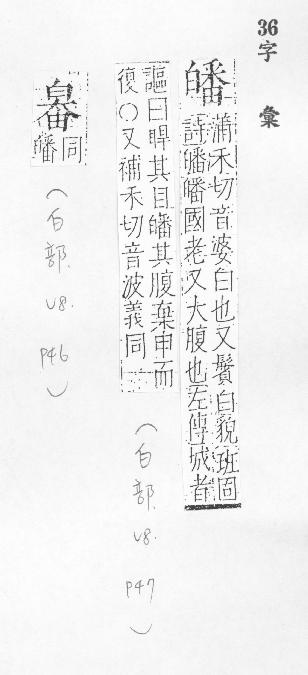 36字 彙
皤
蒲禾切音婆白也又鬢白貌班固
詩皤皤國老又大腹也左傳城者
謳曰睅其目皤其腹棄甲而
復○又補禾切音波義同
(白部. v8. P47)
同
皤
(白部. v8. P46)